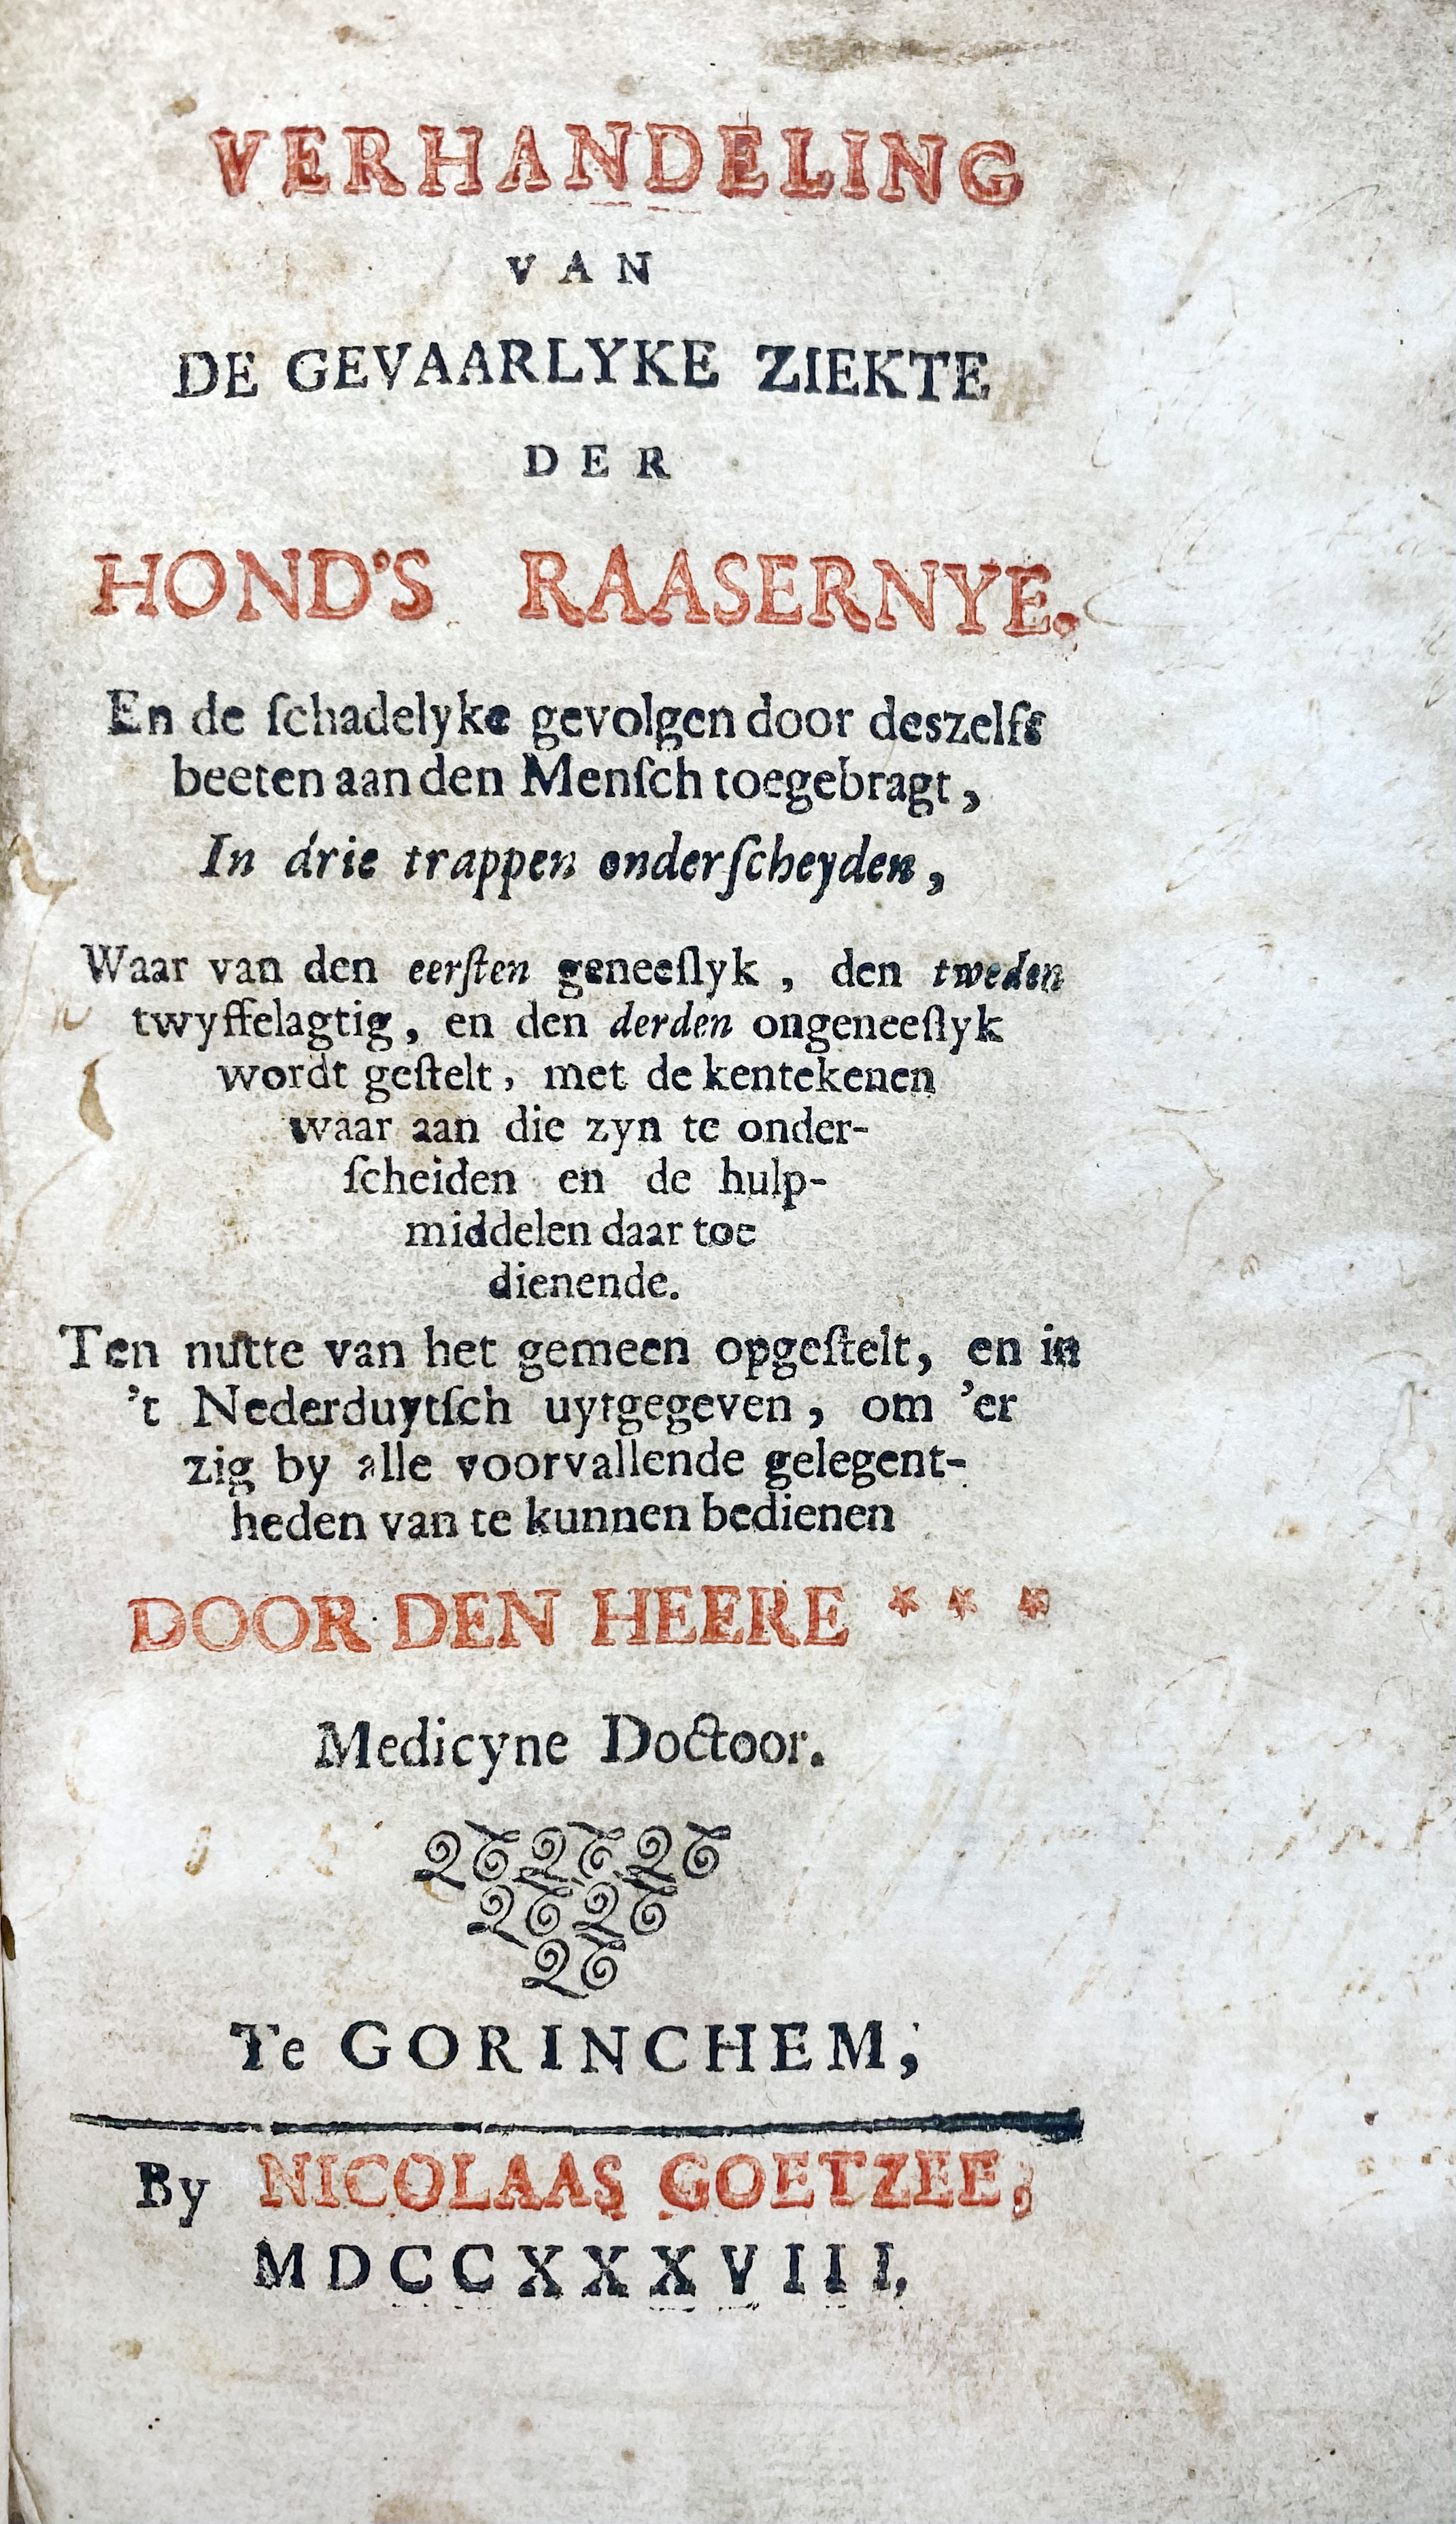 VERHANDELING
VAN
DE GEVAARLYKE ZIEKTE
DER
HOND'S RAASERNYE.
En de ſchadelyke gevolgen door deszelfs
beeten aan den Menſch toegebragt,
In drie trappen onderſcheyden,
Waar van den eerſten geneeſlyk, den tweden
twyffelagtig, en den derden ongeneeſlyk
wordt geſtelt, met de kentekenen
waar aan die zyn te onder-
ſcheiden en de hulp-
middelen daar toe
dienende.
Ten nutte van het gemeen opgeſtelt, en in
't Nederduytſch uytgegeven, om 'er
zig by alle voorvallende gelegent-
heden van te kunnen bedienen
DOOR DEN HEERE * * *
Medicyne Doctoor.
Te GORINCHEM;
By NICOLAAS GOETZEE;
MDCCXXXVIII,